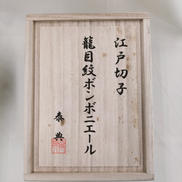 江戸切子
籠目紋ボンボニエール
泰典